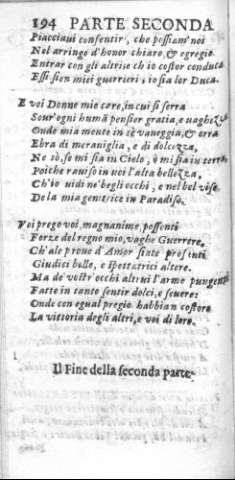 194 PARTE SECONDA
Piacciavi consentir, che possiam' noi
Nel arringo d'honor chiaro, & egregio
Entrar con gli altri: se ch io costor conduca
Esse sien miei guerrieri; io sia lor Duca.
E voi Donne mie care, in cui si serra
Sour'ogni humã pensier gratia, e vaghezza
Onde mia mente in sè vaneggia, & erra
Ebra di meraviglia, e di dolcezza,
Ne sò, so mi sia in Cielo, ò mi sia in terra
Poiche raviso in voi l'alta bellezza,
Ch'io vidi ne' begli occhi, e nel bel viso
De la mia genitrice in Paradiso.
Voi prego voi, magnanime, possenti
Forze del regno mio, vaghe Guerrere,
Ch'ale prove d'Amor siate presenti
Giudici belle, e spettatrici altere.
Ma de' vostr'occhi altrui l'arme pungenti
Fatte in tanto sentir dolci, e severe:
Onde con egual pregio habbian costoro
La vittoria degli altri, e voi di loro.
Il Fine della seconda parte.